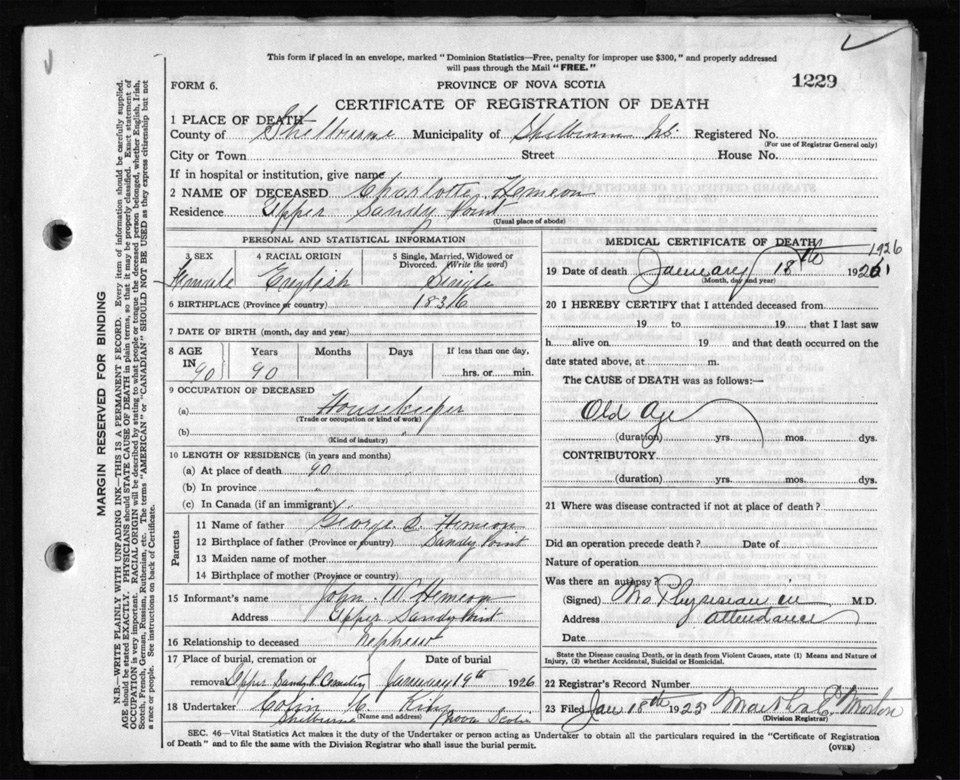 This form if placed in an envelope, marked "Dominion Statistics—Free, penalty for improper use $300," and properly addressed
will pass through the Mail "FREE."
1229
FORM 6. PROVINCE OF NOVA SCOTIA
CERTIFICATE OF REGISTRATION OF DEATH
1 PLACE OF DEATH
County of Shelburne Municipality of Shelburne NS. Registered No.
(For use of Registrar General only)
City or Town Street House No.
If in hospital or institution, give name
2 NAME OF DECEASED Charlotte Hemeon
Residence Upper Sandy Point
(Usual place of abode)
PERSONAL AND STATISTICAL INFORMATION
3 SEX 4 RACIAL ORIGIN 5 Single, Married, Widowed or
Divorced. (Write the word)
Female English Single
6 BIRTHPLACE (Province or country) 1836
7 DATE OF BIRTH (month, day and year)
8 AGE Years Months Days If less than one day,
IN 90 90 hrs. or min.
9 OCCUPATION OF DECEASED
(a) Housekeeper
(Trade or occupation or kind of work)
(b)
(Kind of industry)
10 LENGTH OF RESIDENCE (in years and months)
(a) At place of death 90
(b) In province "
(c) In Canada (if an immigrant) "
Parents
11 Name of father George D. Hemeon
12 Birthplace of father (Province or country) Sandy Point
13 Maiden name of mother
14 Birthplace of mother (Province or country)
15 Informant's name John W. Hemeon
Address Upper Sandy Point
16 Relationship to deceased Nephew
17 Place of burial, cremation or Date of burial
removal Upper Sandy P. Cemetery January 19th 1926
18 Undertaker Colin C. King
Shelburne (Name and address) Nova Scotia
MEDICAL CERTIFICATE OF DEATH
19 Date of death January 18th 1926
(Month, day and year)
20 I HEREBY CERTIFY that I attended deceased from
19 to 19 that I last saw
h alive on 19 and that death occurred on the
date stated above, at m.
The CAUSE OF DEATH was as follows:—
Old Age
(duration) yrs. mos. dys.
CONTRIBUTORY
(duration) yrs. mos. dys.
21 Where was disease contracted if not at place of death?
Did an operation precede death? Date of
Nature of operation
Was there an autopsy?
(Signed) No Physician in, M.D.
Address attendance
Date
State the Disease causing Death, or in death from Violent Causes, state (1) Means and Nature of
Injury, (2) whether Accidental, Suicidal or Homicidal.
22 Registrar's Record Number
23 Filed Jan 18th 1925 Martha E. Morton
(Division Registrar)
SEC. 46—Vital Statistics Act makes it the duty of the Undertaker or person acting as Undertaker to obtain all the particulars required in the "Certificate of Registration
of Death" and to file the same with the Division Registrar who shall issue the burial permit. (OVER)
MARGIN RESERVED FOR BINDING
N.B.—WRITE PLAINLY WITH UNFADING INK—THIS IS A PERMANENT RECORD. Every item of information should be carefully supplied.
AGE should be stated EXACTLY. PHYSICIANS should STATE CAUSE OF DEATH in plain terms, so that it may be properly classified. Exact statement of
OCCUPATION is very important. RACIAL ORIGIN will be described by stating to what people or tongue the deceased person belonged, whether English, Irish,
Scotch, French, German, Russian, Ruthenian, etc. The terms "AMERICAN" or "CANADIAN" SHOULD NOT BE USED as they express citizenship but not
a race or people. See instructions on back of Certificate.